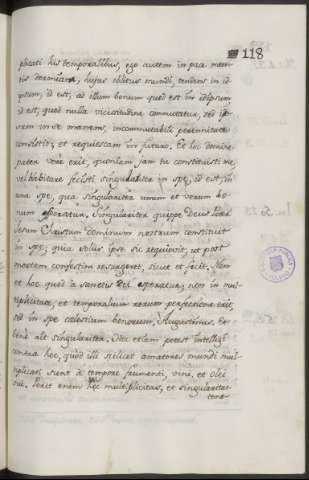 118
plicati his temporalibus, ego autem in pace men-
tis dormiam, hujus oblitus mundi, tendens in id-
ipsum, id est, ad illum bonum quod est in idipsum
id est, quod nulla vicissitudine commutatur, sed ip-
sum in se manens, incommutabili perennitate
consistit; et requiescam in futuro. Et hic domine
pater vere exit, quoniam jam tu constituisti me,
vel habitare fecisti singulariter in spe, id est, in
una spe, qua singulariter unum et verum bo-
num speratur. Singulariter quippe Deus Pater
Jesum Christum continuum nostrum constituit
in spe; quia solus ipse sic requievit, ut post
mortem confestim resurgeret, sicut et fecit. Non
et hoc quod a sanctis Dei speratur, non in mul-
tiplicitate, et temporalium rerum perfectione exit,
sed in spe cælestium bonorum, Augustinus. Et
bene ait singulariter. Nec etiam potest intelligi
contra hoc, quod illi scilicet amatores mundi mul-
tiplicati sunt a tempore frumenti, vini, et olei
sui. Perit enim hæc multiplicitas, et singularitas
tene-